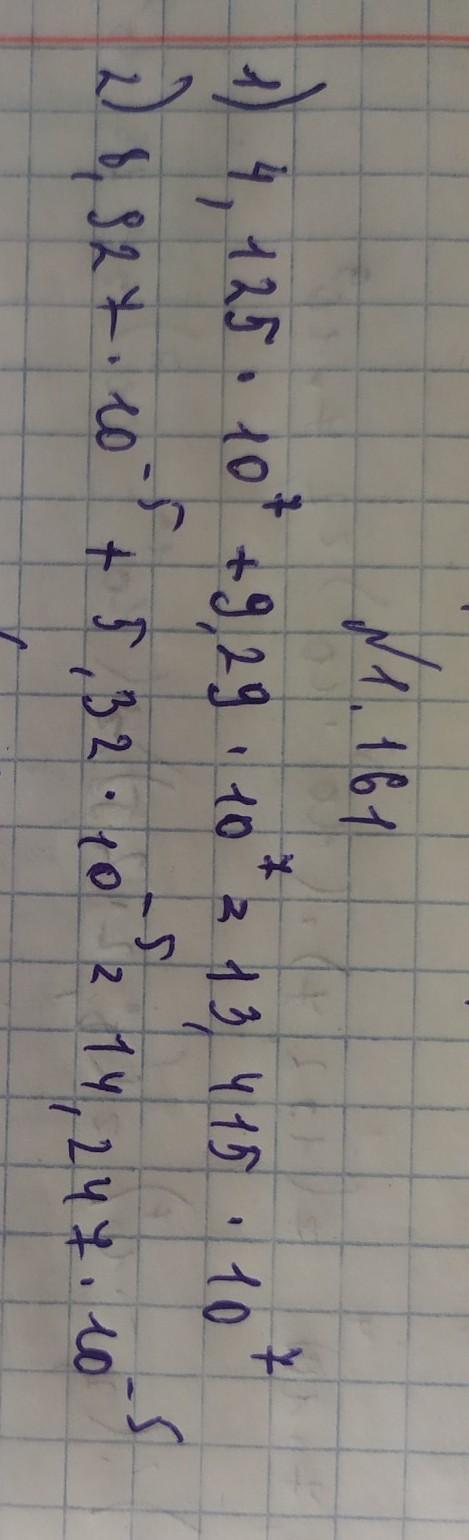 №1.161
1) 4,125 · 10⁷ + 9,29 · 10⁷ = 13,415 · 10⁷
2) 8,927 · 10⁻⁵ + 5,32 · 10⁻⁵ = 14,247 · 10⁻⁵